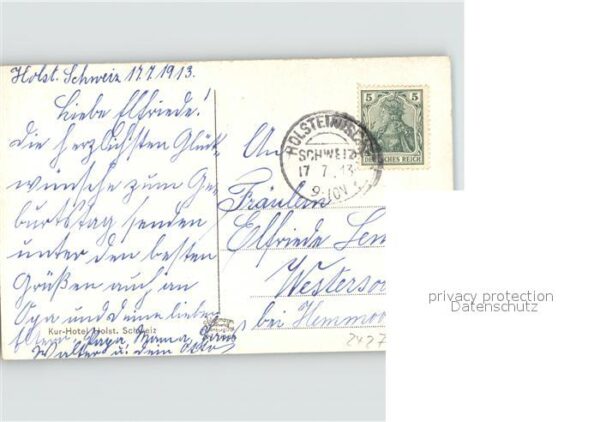 Holst. Schweiz 17.7.1913.
Liebe Elfriede!
Die herzlichsten Glück-
wünsche zum Ge-
burtstag senden
unter den besten
Grüßen auch an
Opa und deine lieben
Eltern, Papa, Mama,
Walter u. dein Otto
Kur-Hotel Holst. Schweiz
An
Fräulein
Elfriede
Westerso
bei Hemmoo
2427
HOLSTEINISCHE
SCHWEIZ
17 7.13
9-10V
5 5
DEUTSCHES REICH
privacy protection
Datenschutz